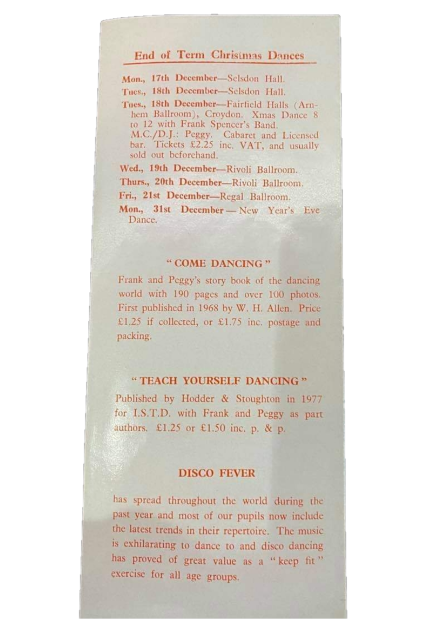 End of Term Christmas Dances
Mon., 17th December—Selsdon Hall.
Tues., 18th December—Selsdon Hall.
Tues., 18th December—Fairfield Halls (Arn-
hem Ballroom), Croydon. Xmas Dance 8
to 12 with Frank Spencer's Band.
M.C./D.J.: Peggy. Cabaret and Licensed
bar. Tickets £2.25 inc. VAT, and usually
sold out beforehand.
Wed., 19th December—Rivoli Ballroom.
Thurs., 20th December—Rivoli Ballroom.
Fri., 21st December—Regal Ballroom.
Mon., 31st December—New Year's Eve
Dance.
"COME DANCING"
Frank and Peggy's story book of the dancing
world with 190 pages and over 100 photos.
First published in 1968 by W. H. Allen. Price
£1.25 if collected, or £1.75 inc. postage and
packing.
"TEACH YOURSELF DANCING"
Published by Hodder & Stoughton in 1977
for I.S.T.D. with Frank and Peggy as part
authors. £1.25 or £1.50 inc. p. & p.
DISCO FEVER
has spread throughout the world during the
past year and most of our pupils now include
the latest trends in their repertoire. The music
is exhilarating to dance to and disco dancing
has proved of great value as a "keep fit"
exercise for all age groups.